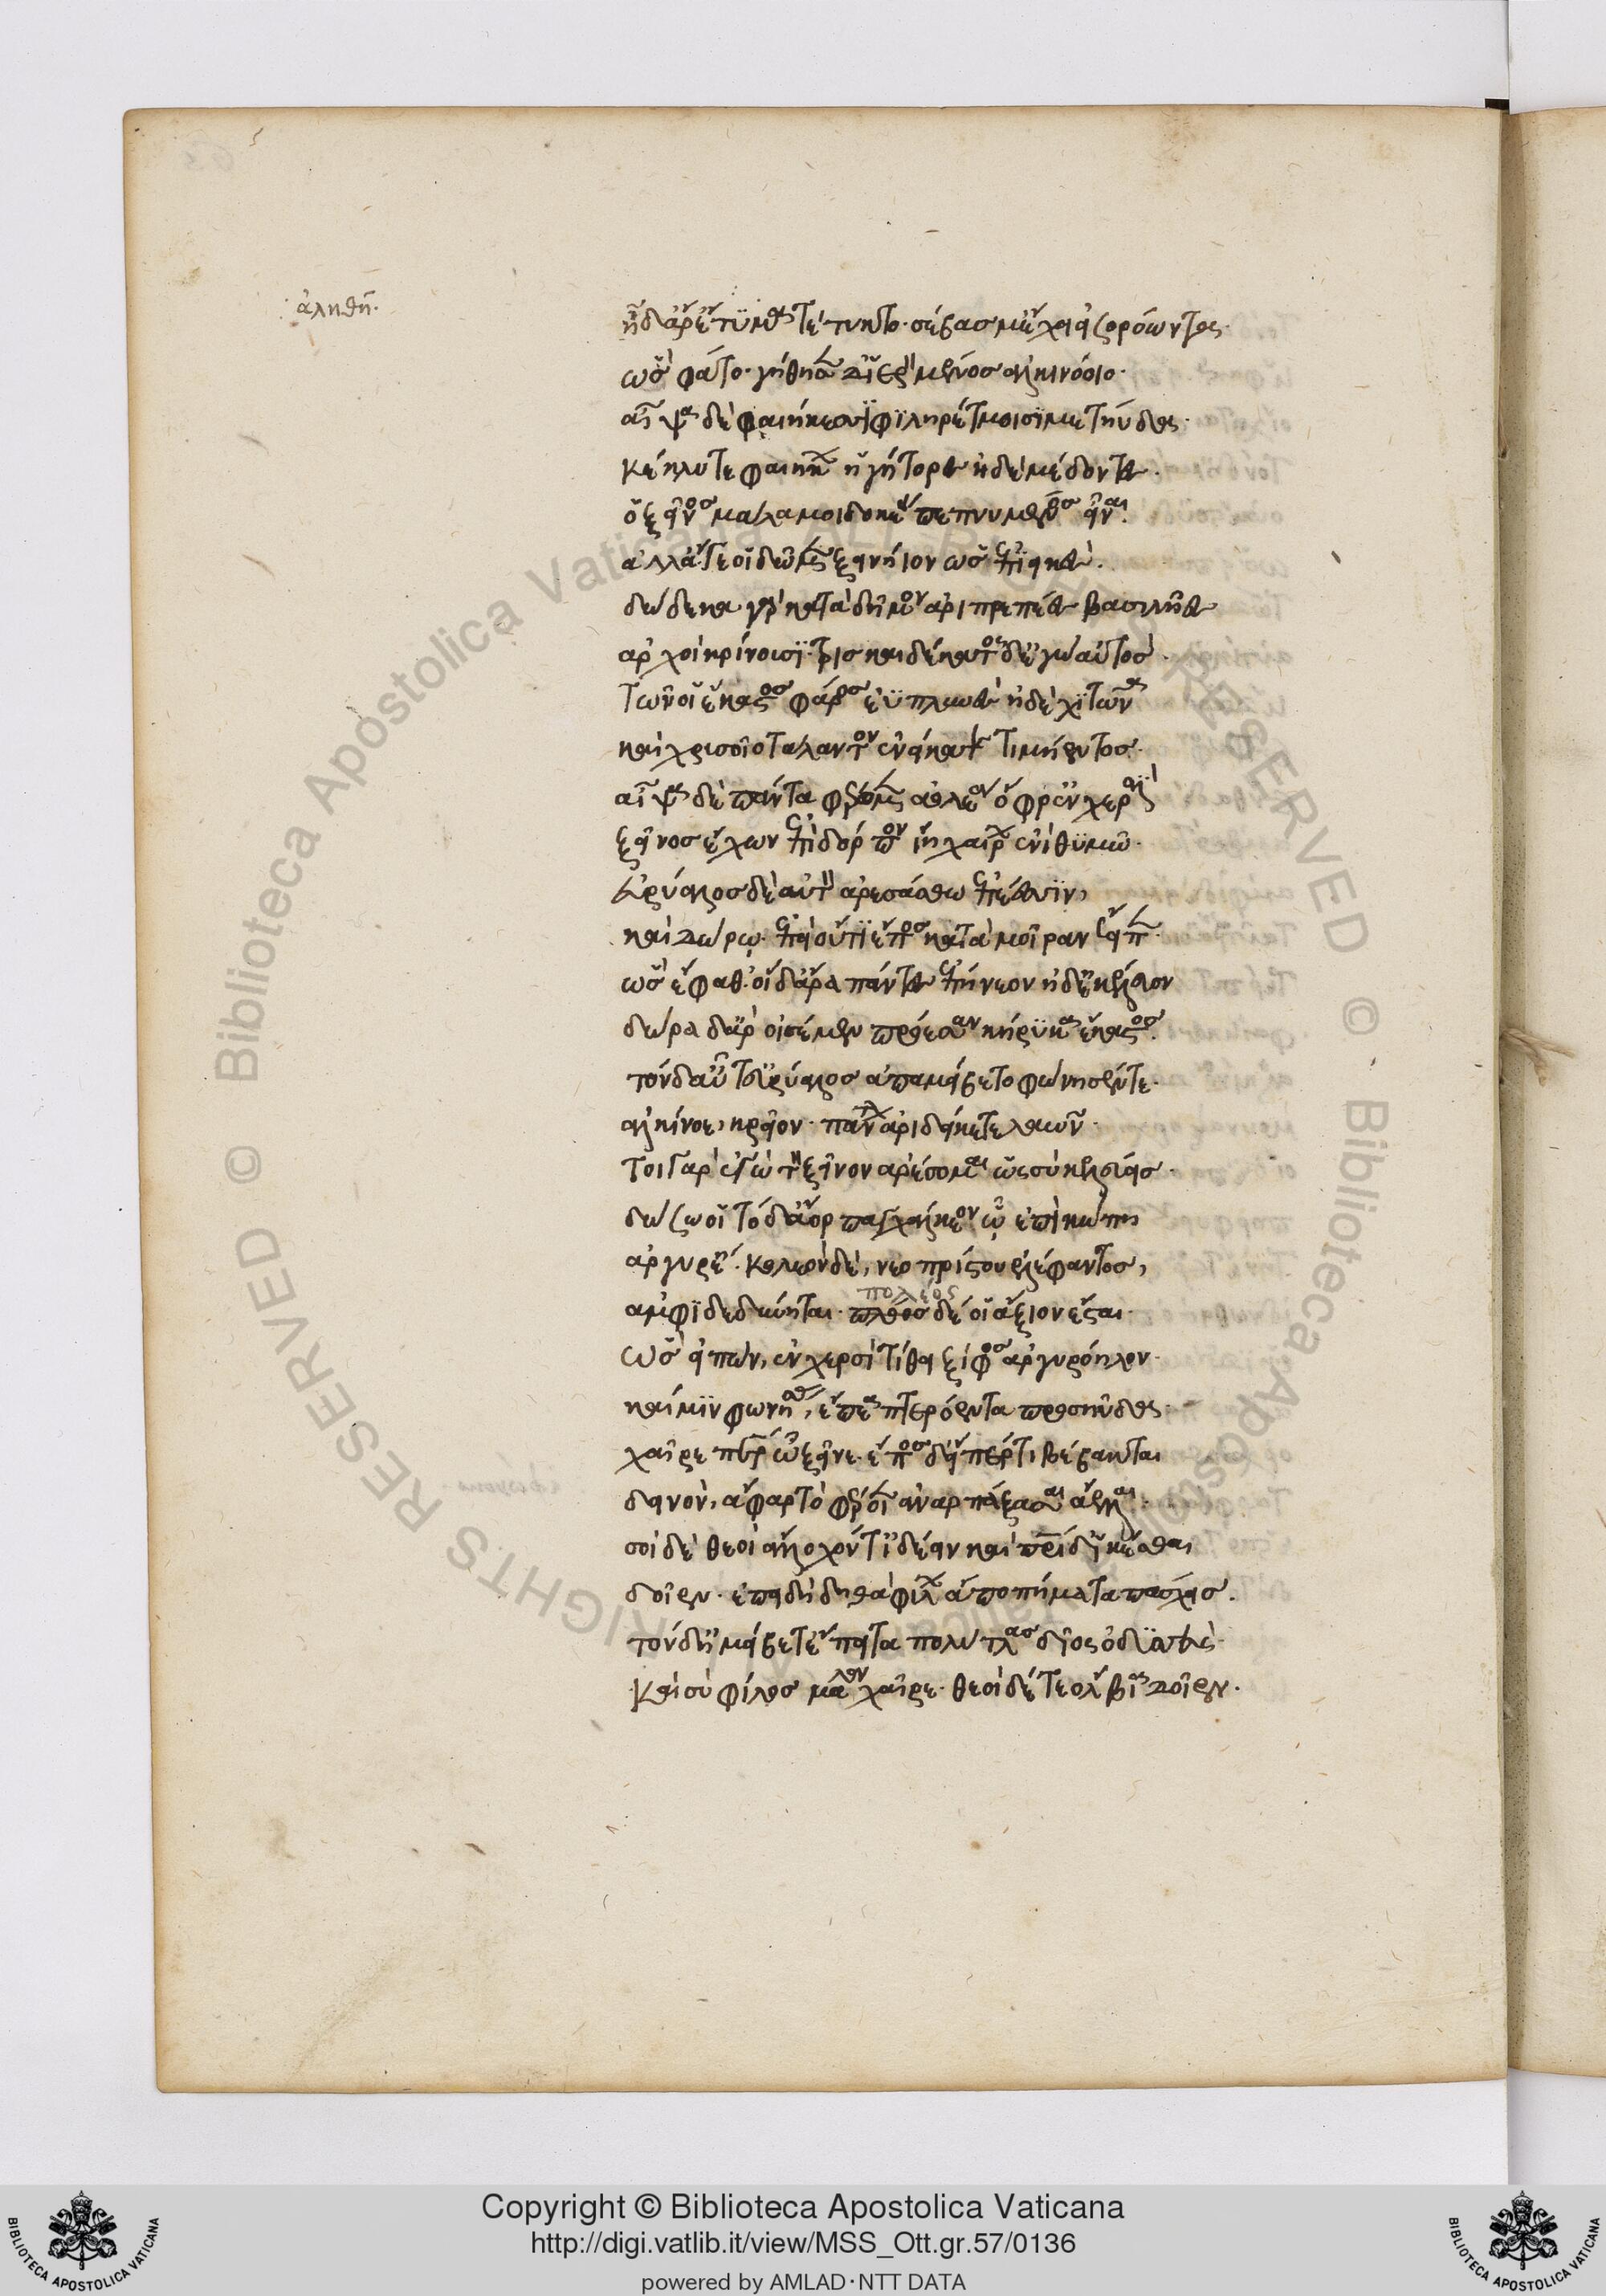 ἀληθῆ.
ἠδ' ἄρ' ἕτοιμα τέτυκτο· σέβας μ' ἔχει εἰσορόωντα.
ὣς φάτο· γήθησε δ' ἱερὸν μένος ἀλκινόοιο·
αἶψα δὲ φαιήκεσσι φιληρέτμοισι μετηύδα·
κέκλυτε φαιήκων ἡγήτορες ἠδὲ μέδοντες.
ὁ ξεῖνος μάλα μοι δοκέει πεπνυμένος εἶναι.
ἀλλ' ἄγε οἱ δῶμεν ξεινήιον ὡς ἐπιεικές.
δώδεκα γὰρ κατὰ δῆμον ἀριπρεπέες βασιλῆες
ἀρχοὶ κρίνουσι· τρισκαιδέκατος δ' ἐγὼ αὐτός.
τῶν οἱ ἕκαστος φᾶρος ἐυπλυνὲς ἠδὲ χιτῶνα
καὶ χρυσοῖο τάλαντον ἐνείκατε τιμήεντος.
αἶψα δὲ πάντα φέρωμεν ἀολλέα ὄφρ' ἐν χερσὶ
ξεῖνος ἔχων ἐπὶ δόρπον ἴῃ χαίρων ἐνὶ θυμῷ.
εὐρύαλος δέ αὐτὸν ἀρεσάσθω ἐπέεσσιν,
καὶ δώρῳ· ἐπεὶ οὔτι ἔπος κατὰ μοῖραν ἔειπεν.
ὣς ἔφαθ· οἱ δ' ἄρα πάντες ἐπήνεον ἠδ' ἐκέλευον
δῶρα δ' ἄρ' οἰσέμεν πρόεσαν κήρυκα ἕκαστος.
τὸν δ' αὖτ' εὐρύαλος ἀπαμείβετο φώνησέν τε·
ἀλκίνοε, κρεῖον· πάντων ἀριδείκετε λαῶν·
τοιγὰρ ἐγὼ τὸν ξεῖνον ἀρέσομαι ὡς σὺ κελεύεις·
δώσω οἱ τόδ' ἄορ παγχάλκεον, ᾧ ἐπὶ κώπη
ἀργυρέη· κολεὸν δὲ, νεοπρίστου ἐλέφαντος,
ἀμφιδεδίνηται· πολέος δέ οἱ ἄξιον ἔσται.
πολέος
ὣς εἰπὼν, ἐν χερσὶ τίθει ξίφος ἀργυρόηλον·
καί μιν φωνήσας, ἔπεα πτερόεντα προσηύδα·
χαῖρε πάτερ ὦ ξεῖνε· ἔπος δ' εἴπερ τι βέβακται
δεινὸν, ἄφαρ τὸ φέροιεν ἀναρπάξασαι ἄελλαι.
σοὶ δὲ θεοὶ ἄλοχόν τ' ἰδέειν καὶ πατρίδ' ἱκέσθαι
δοῖεν· ἐπειδὴ δηθὰ φίλων ἄπο πήματα πάσχεις.
τὸν δ' ἠμείβετ' ἔπειτα πολύτλας δῖος ὀδυσσεύς·
καὶ σὺ φίλος μάλα χαῖρε· θεοὶ δέ τε ὄλβια δοῖεν.
Copyright © Biblioteca Apostolica Vaticana
http://digi.vatlib.it/view/MSS_Ott.gr.57/0136
powered by AMLAD·NTT DATA